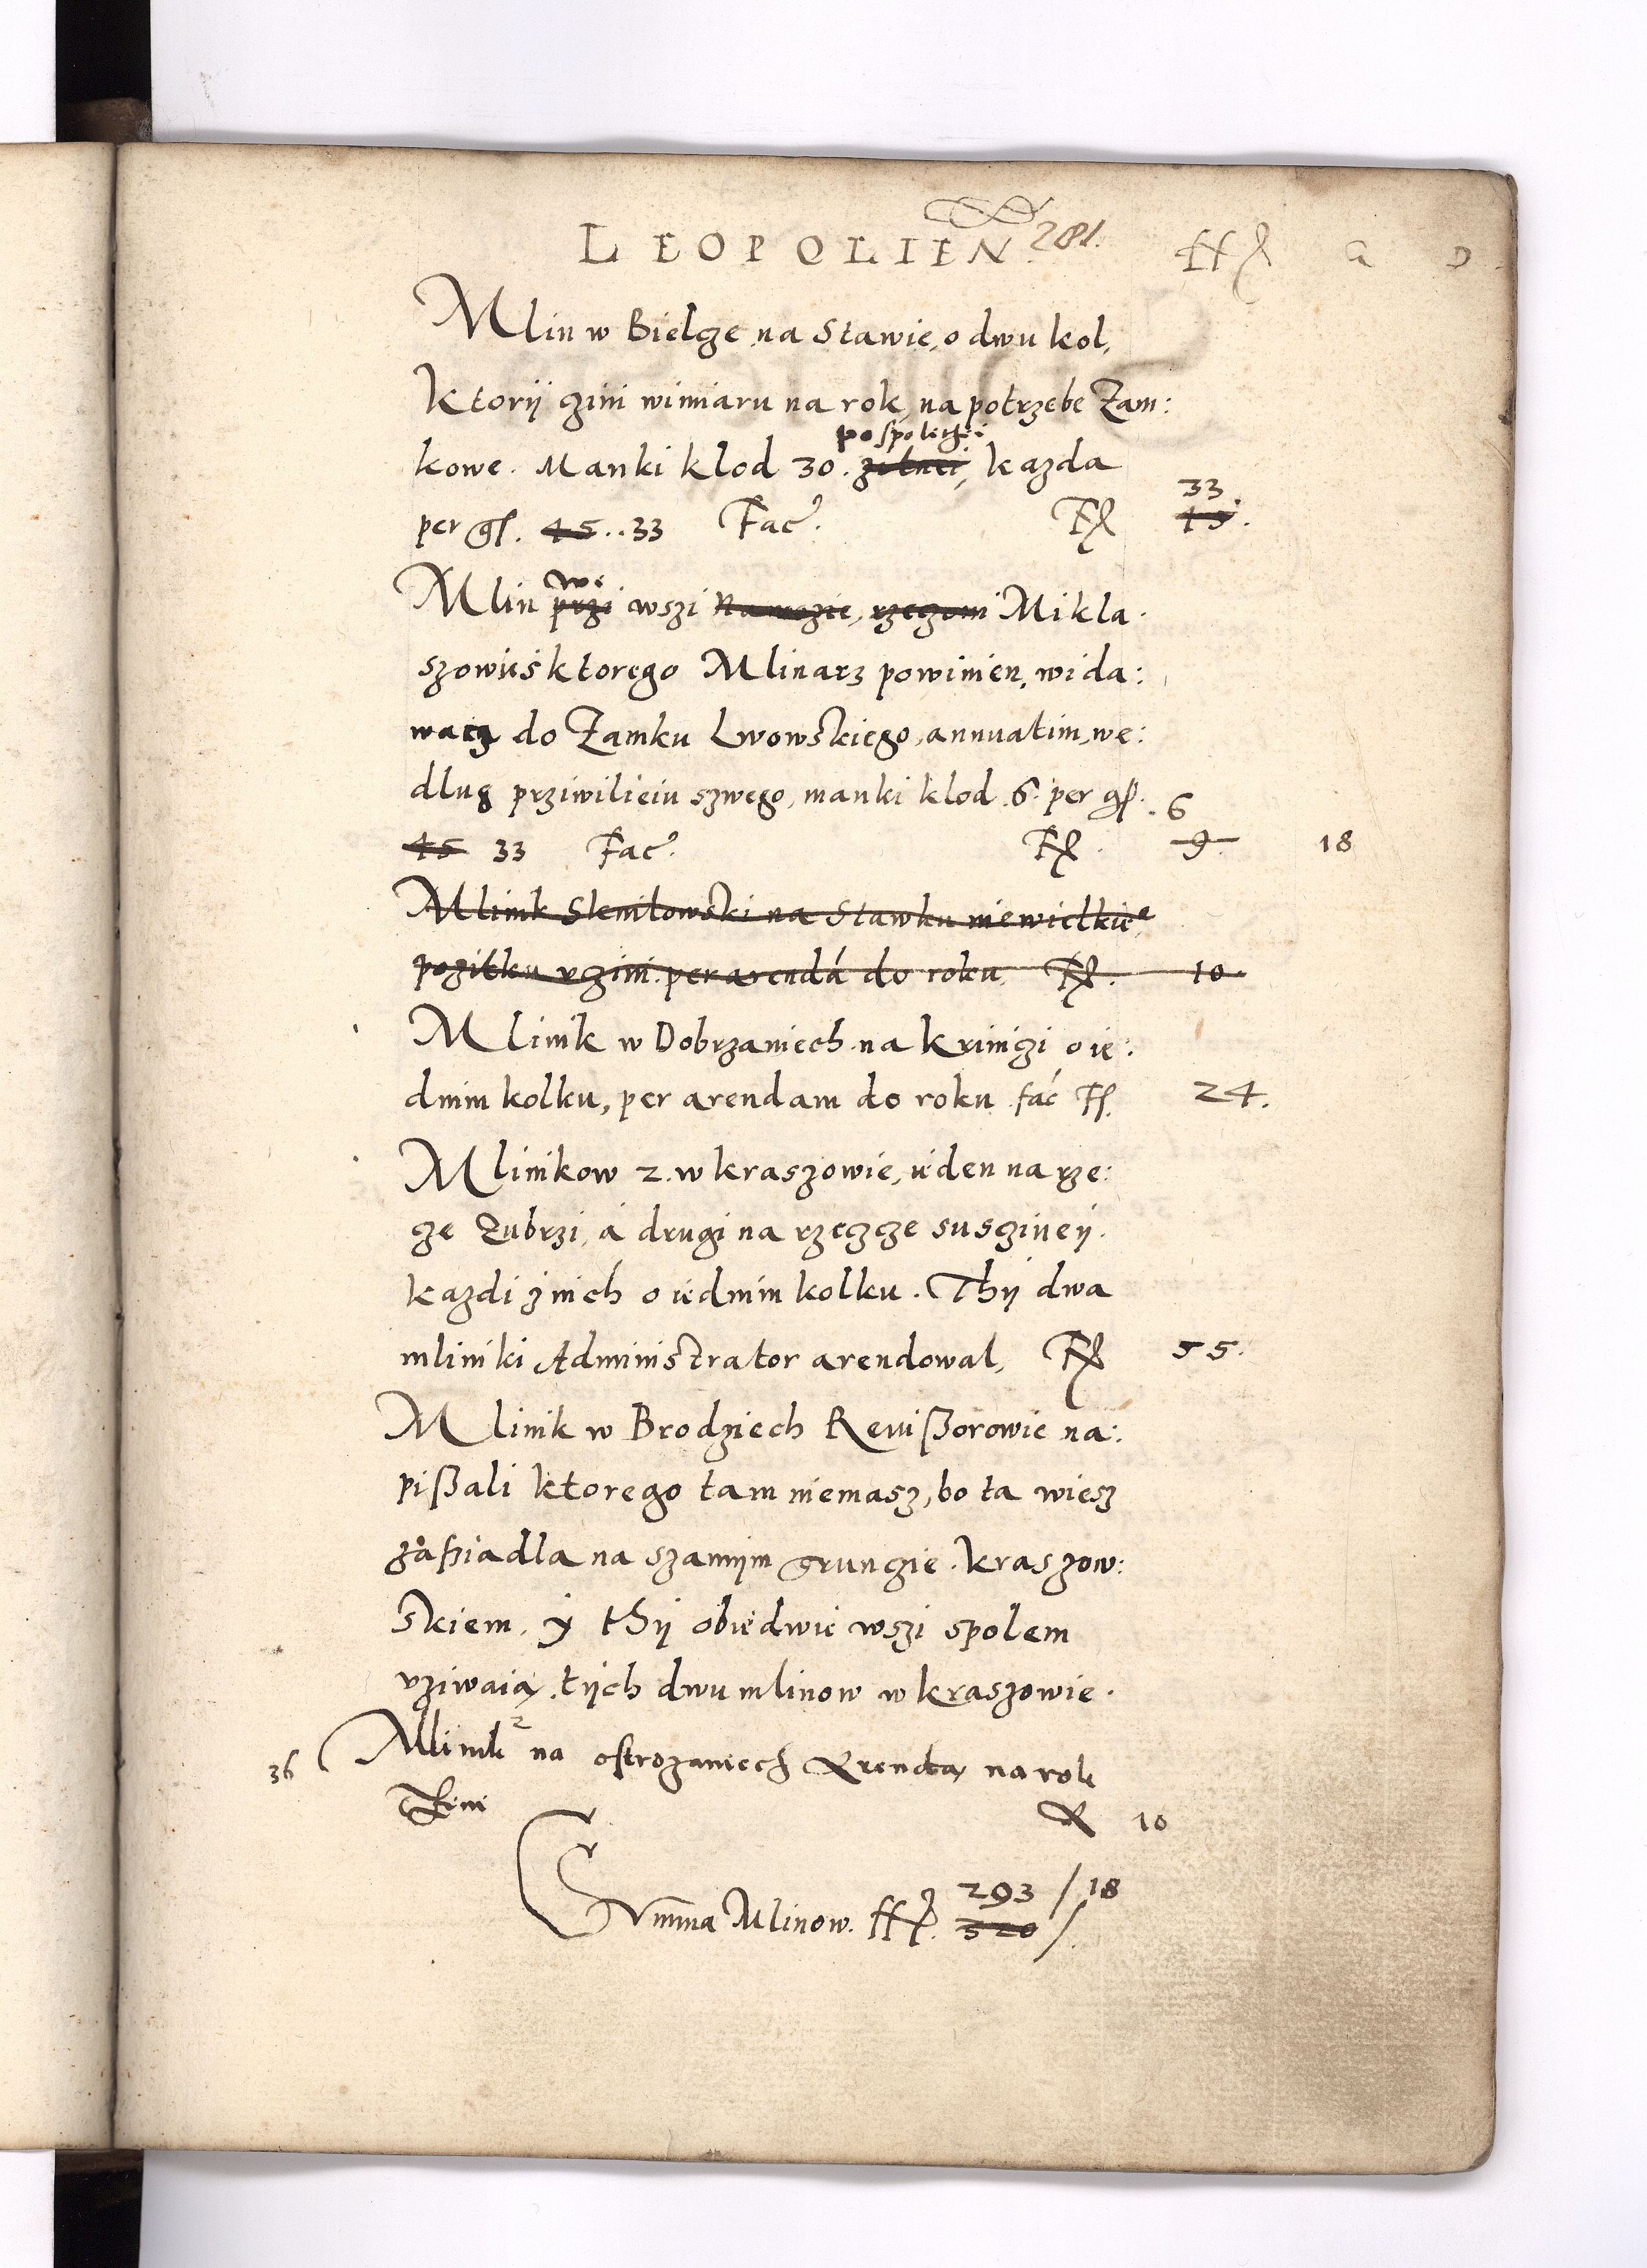 LEOPOLIEN. 281. ff G D
Mlin w Bielcze na Stawie, o dwu kol,
ktorÿ czini wimiaru na rok, na potrzebe Zam:
pospoliczei
kowe. Manki klod 30. zitnei, kazda
33
per gr. 45..33 Fac. Fl 45.
we
Mlin przi wszi Nawozie, rzeczoni Mikla.
szowie ktorego Mlinarz powinien, wida:
wacz do Zamku Lwowskiego, annuatim, we:
dlug prziwilieiu szwego, manki klod .6. per gr. 6
45 33 Fac. Fl. 9. 18
Mlinik Sknilowski na Stawku niewielkie
pozitku vczini. per arendá do roku, Fl. 10.
Mlinik w Dobrzaniech na kriniczi o ie:
dnim kolku, per arendam do roku fac Fl. 24.
Mlinikow 2. w kraszowie, ieden na rze:
cze Zubrzi, a drugi na rzeczcze susczineÿ.
kazdi z nich o iednim kolku. Thÿ dwa
mliniki Administrator arendowal, Fl 55.
Mlinik w Brodziech Reuißorowie na:
pißali ktorego tam niemasz, bo ta wiesz
zaßiadla na szamÿm gruncie. kraszow:
skiem. ÿ thÿ obiedwie wszi spolem
vziwaią, tÿch dwu mlinow w kraszowie.
36 Mlinik 2 na ostrozaniech Arendą na rok
czini fl 10
293 / 18
Summa Mlinow. ff. 320 /.